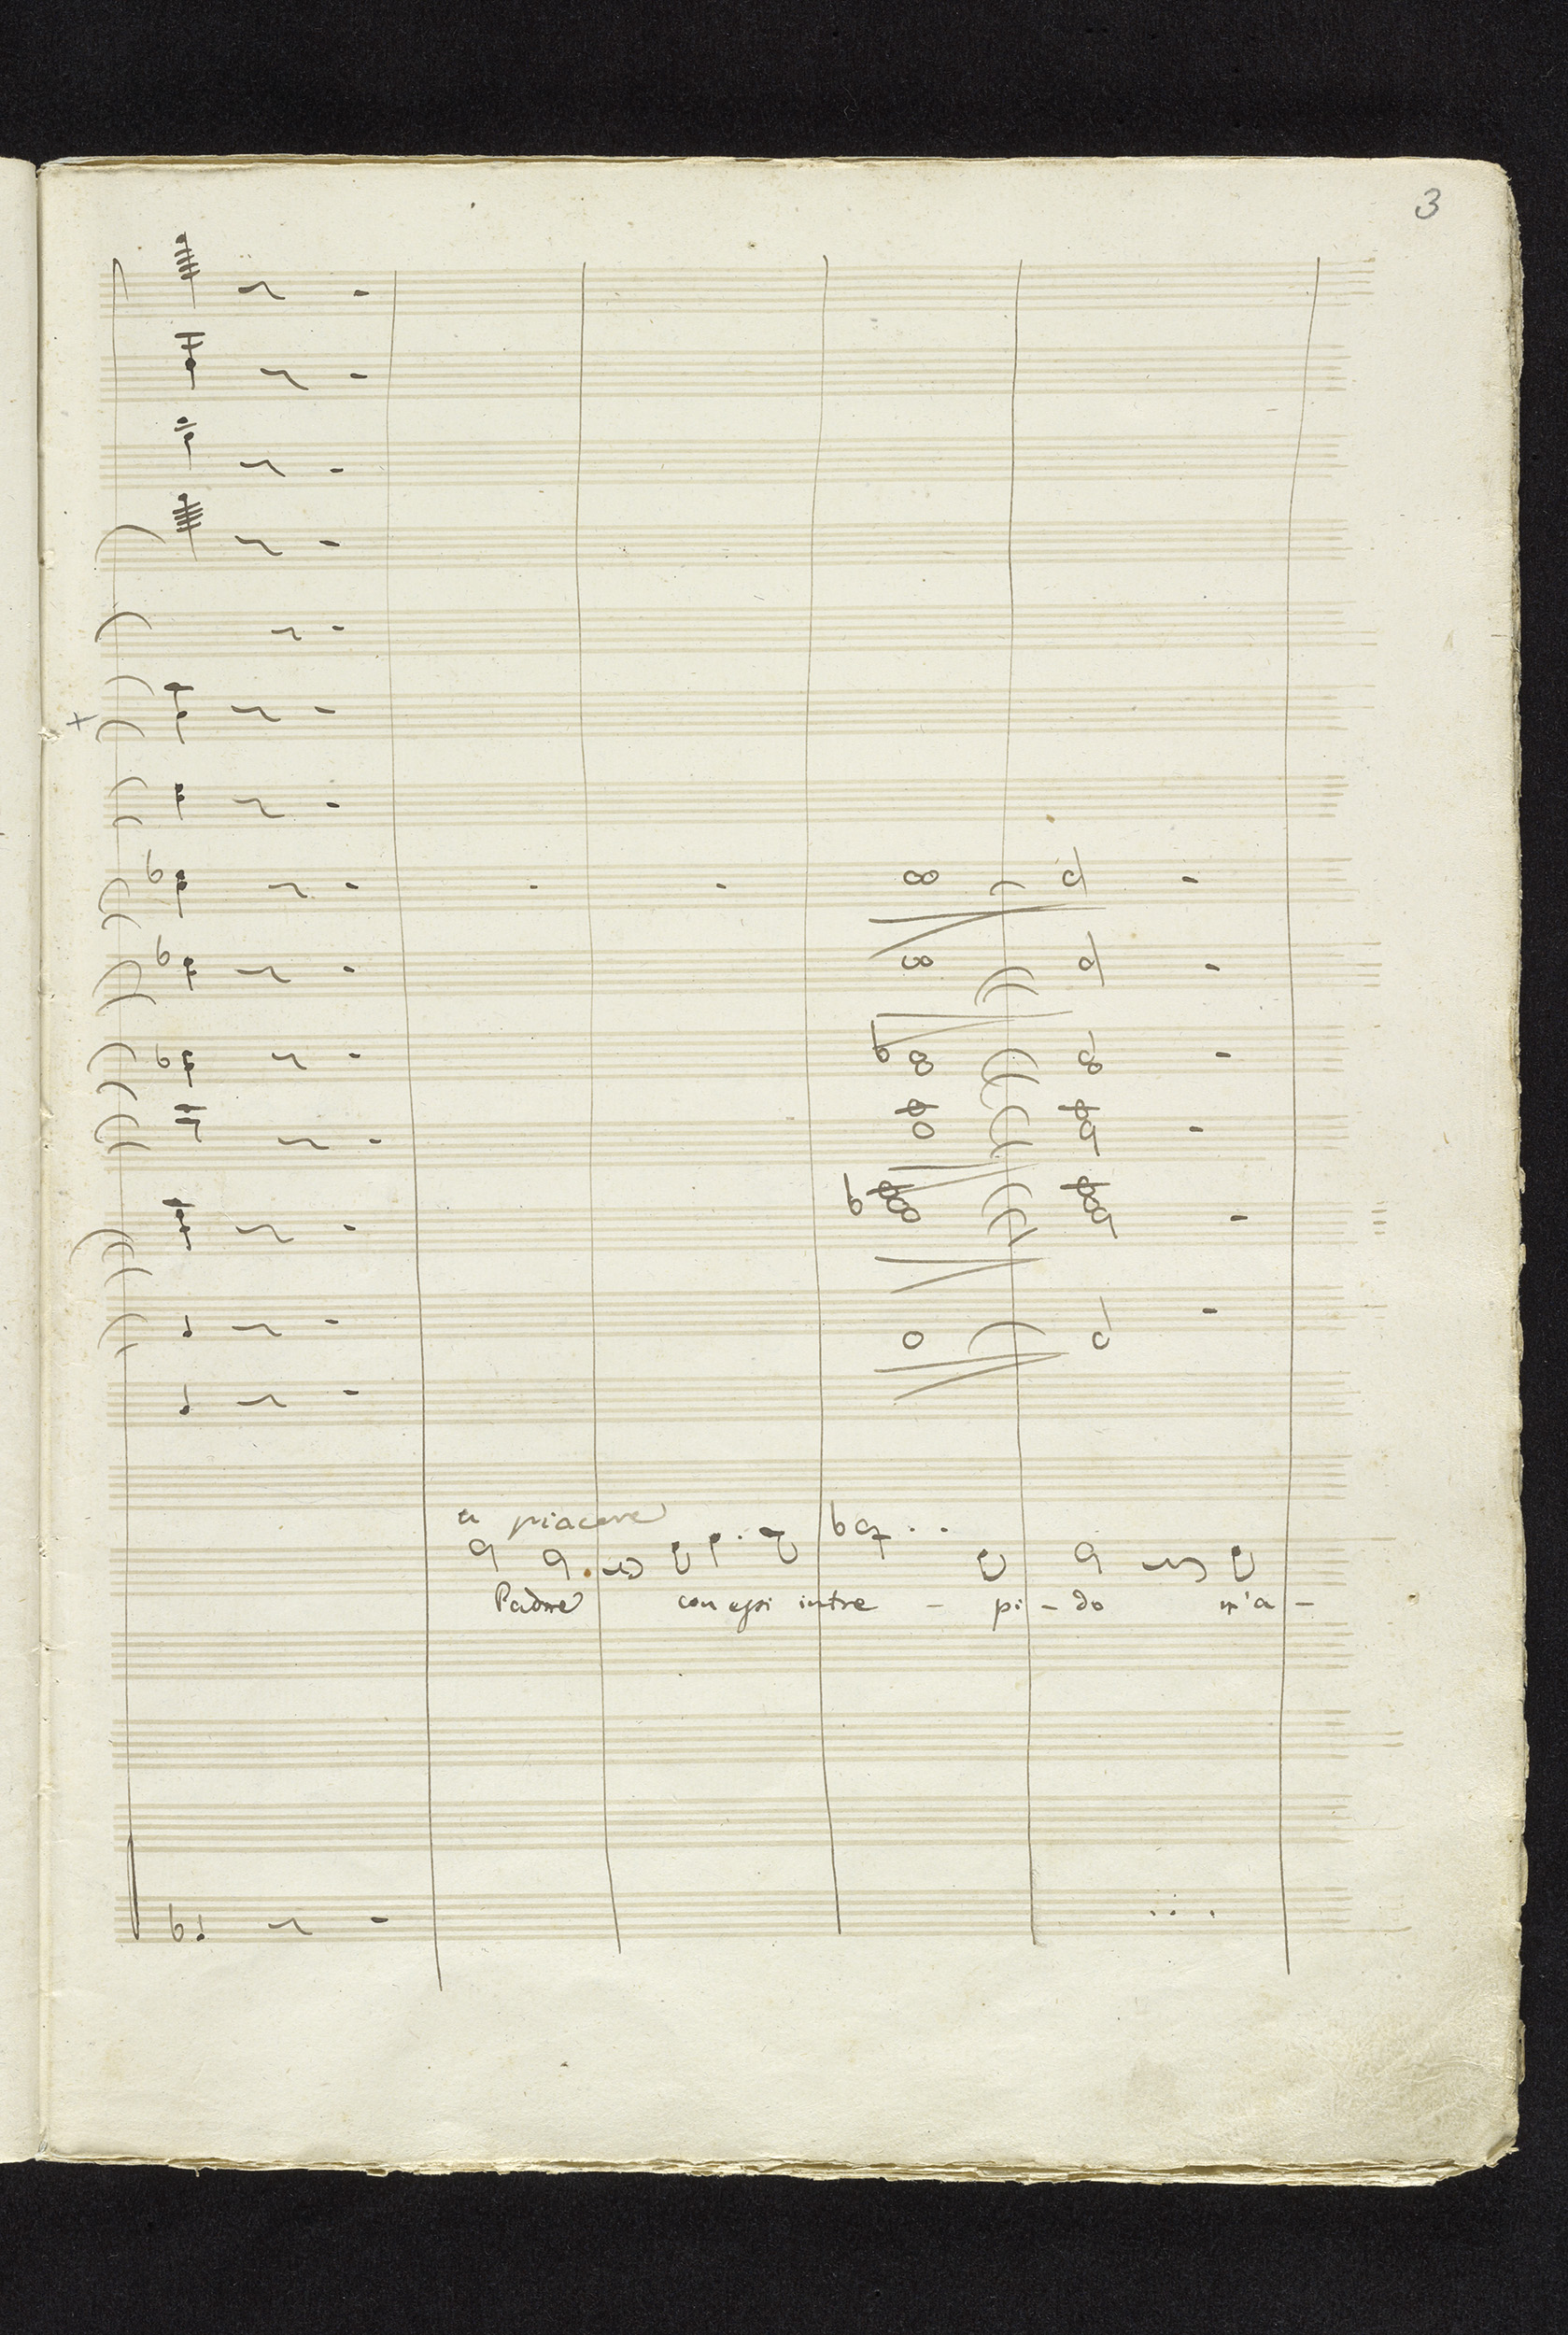 3
a piacere
Padre con essi intre - pi - do m'a -